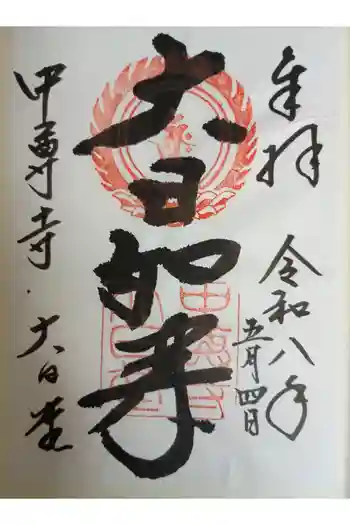 奉拝
令和八年
五月四日
大日如来
甲尊寺・大日堂